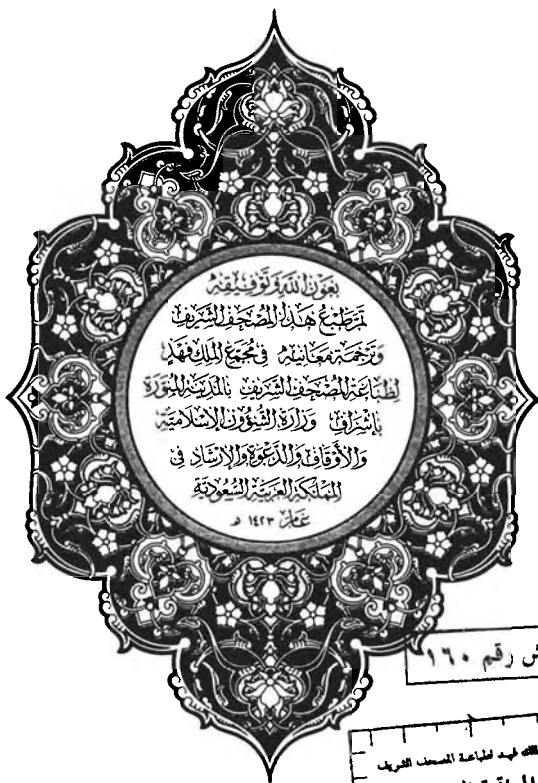 بعون الله وتوفيقه
تم طبع هذا المصحف الشريف
وترجمة معانيه في مجمع الملك فهد
لطباعة المصحف الشريف بالمدينة المنورة
بإشراف وزارة الشؤون الإسلامية
والأوقاف والدعوة والإرشاد في
المملكة العربية السعودية
عام ١٤٢٣ هـ
رقم ١٦٠
فهد لطباعة المصحف الشريف